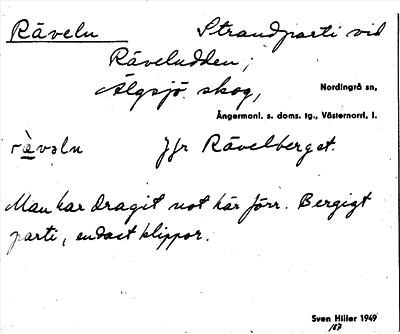 Råveln Strandparti vid
Råveludden;
Älgsjö skog, Nordingrå sn,
Ångermanl. s. doms. tg., Västernorrl. l.
rå̀vəln Jfr Råvelberget.
Man har dragit not här förr. Bergigt
parti, endast klippor.
Sven Hiller 1949
187